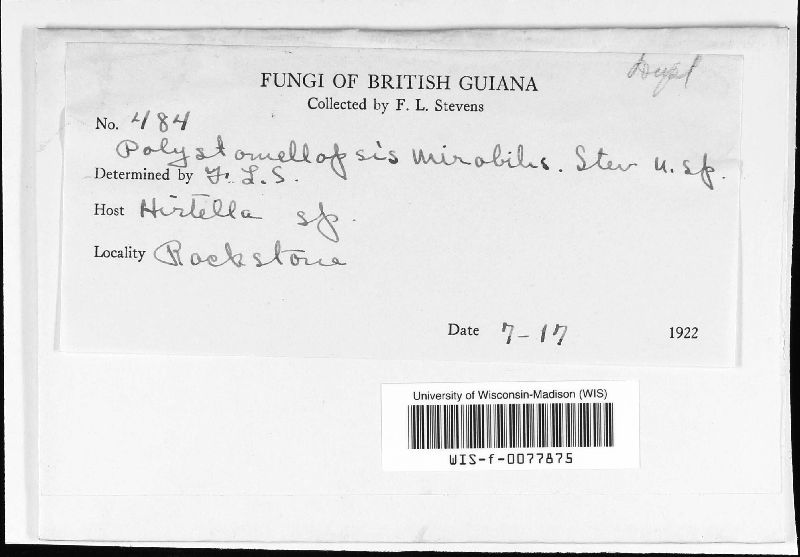 FUNGI OF BRITISH GUIANA
Collected by F. L. Stevens
No. 484
Polystomellopsis mirabilis. Stev n. sp.
Determined by F. L. S.
Host Hirtella sp.
Locality Rockstone
Date 7-17 1922
University of Wisconsin-Madison (WIS)
WIS-f-0077875